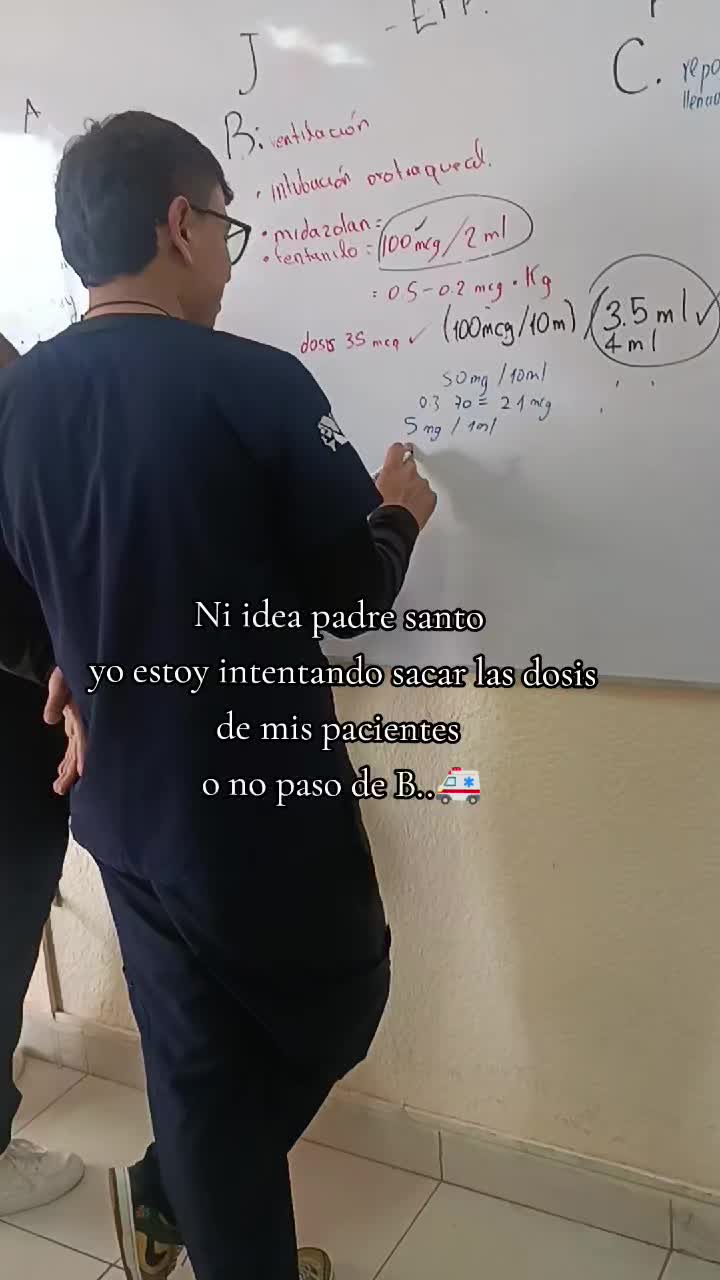 - EPP.
J
A
C.
B: ventilación
• intubución orotraqueal.
• midazolan=
• fentanilo = 100 mcg/2 ml
= 0.5-0.2 mcg • Kg
dosis 35 mcg ✓ (100mcg/10m) / 3.5 ml ✓
4 ml
50mg /10ml
0.3 70 = 21 mg
5 mg / 1ml
Ni idea padre santo
yo estoy intentando sacar las dosis
de mis pacientes
o no paso de B..🚑